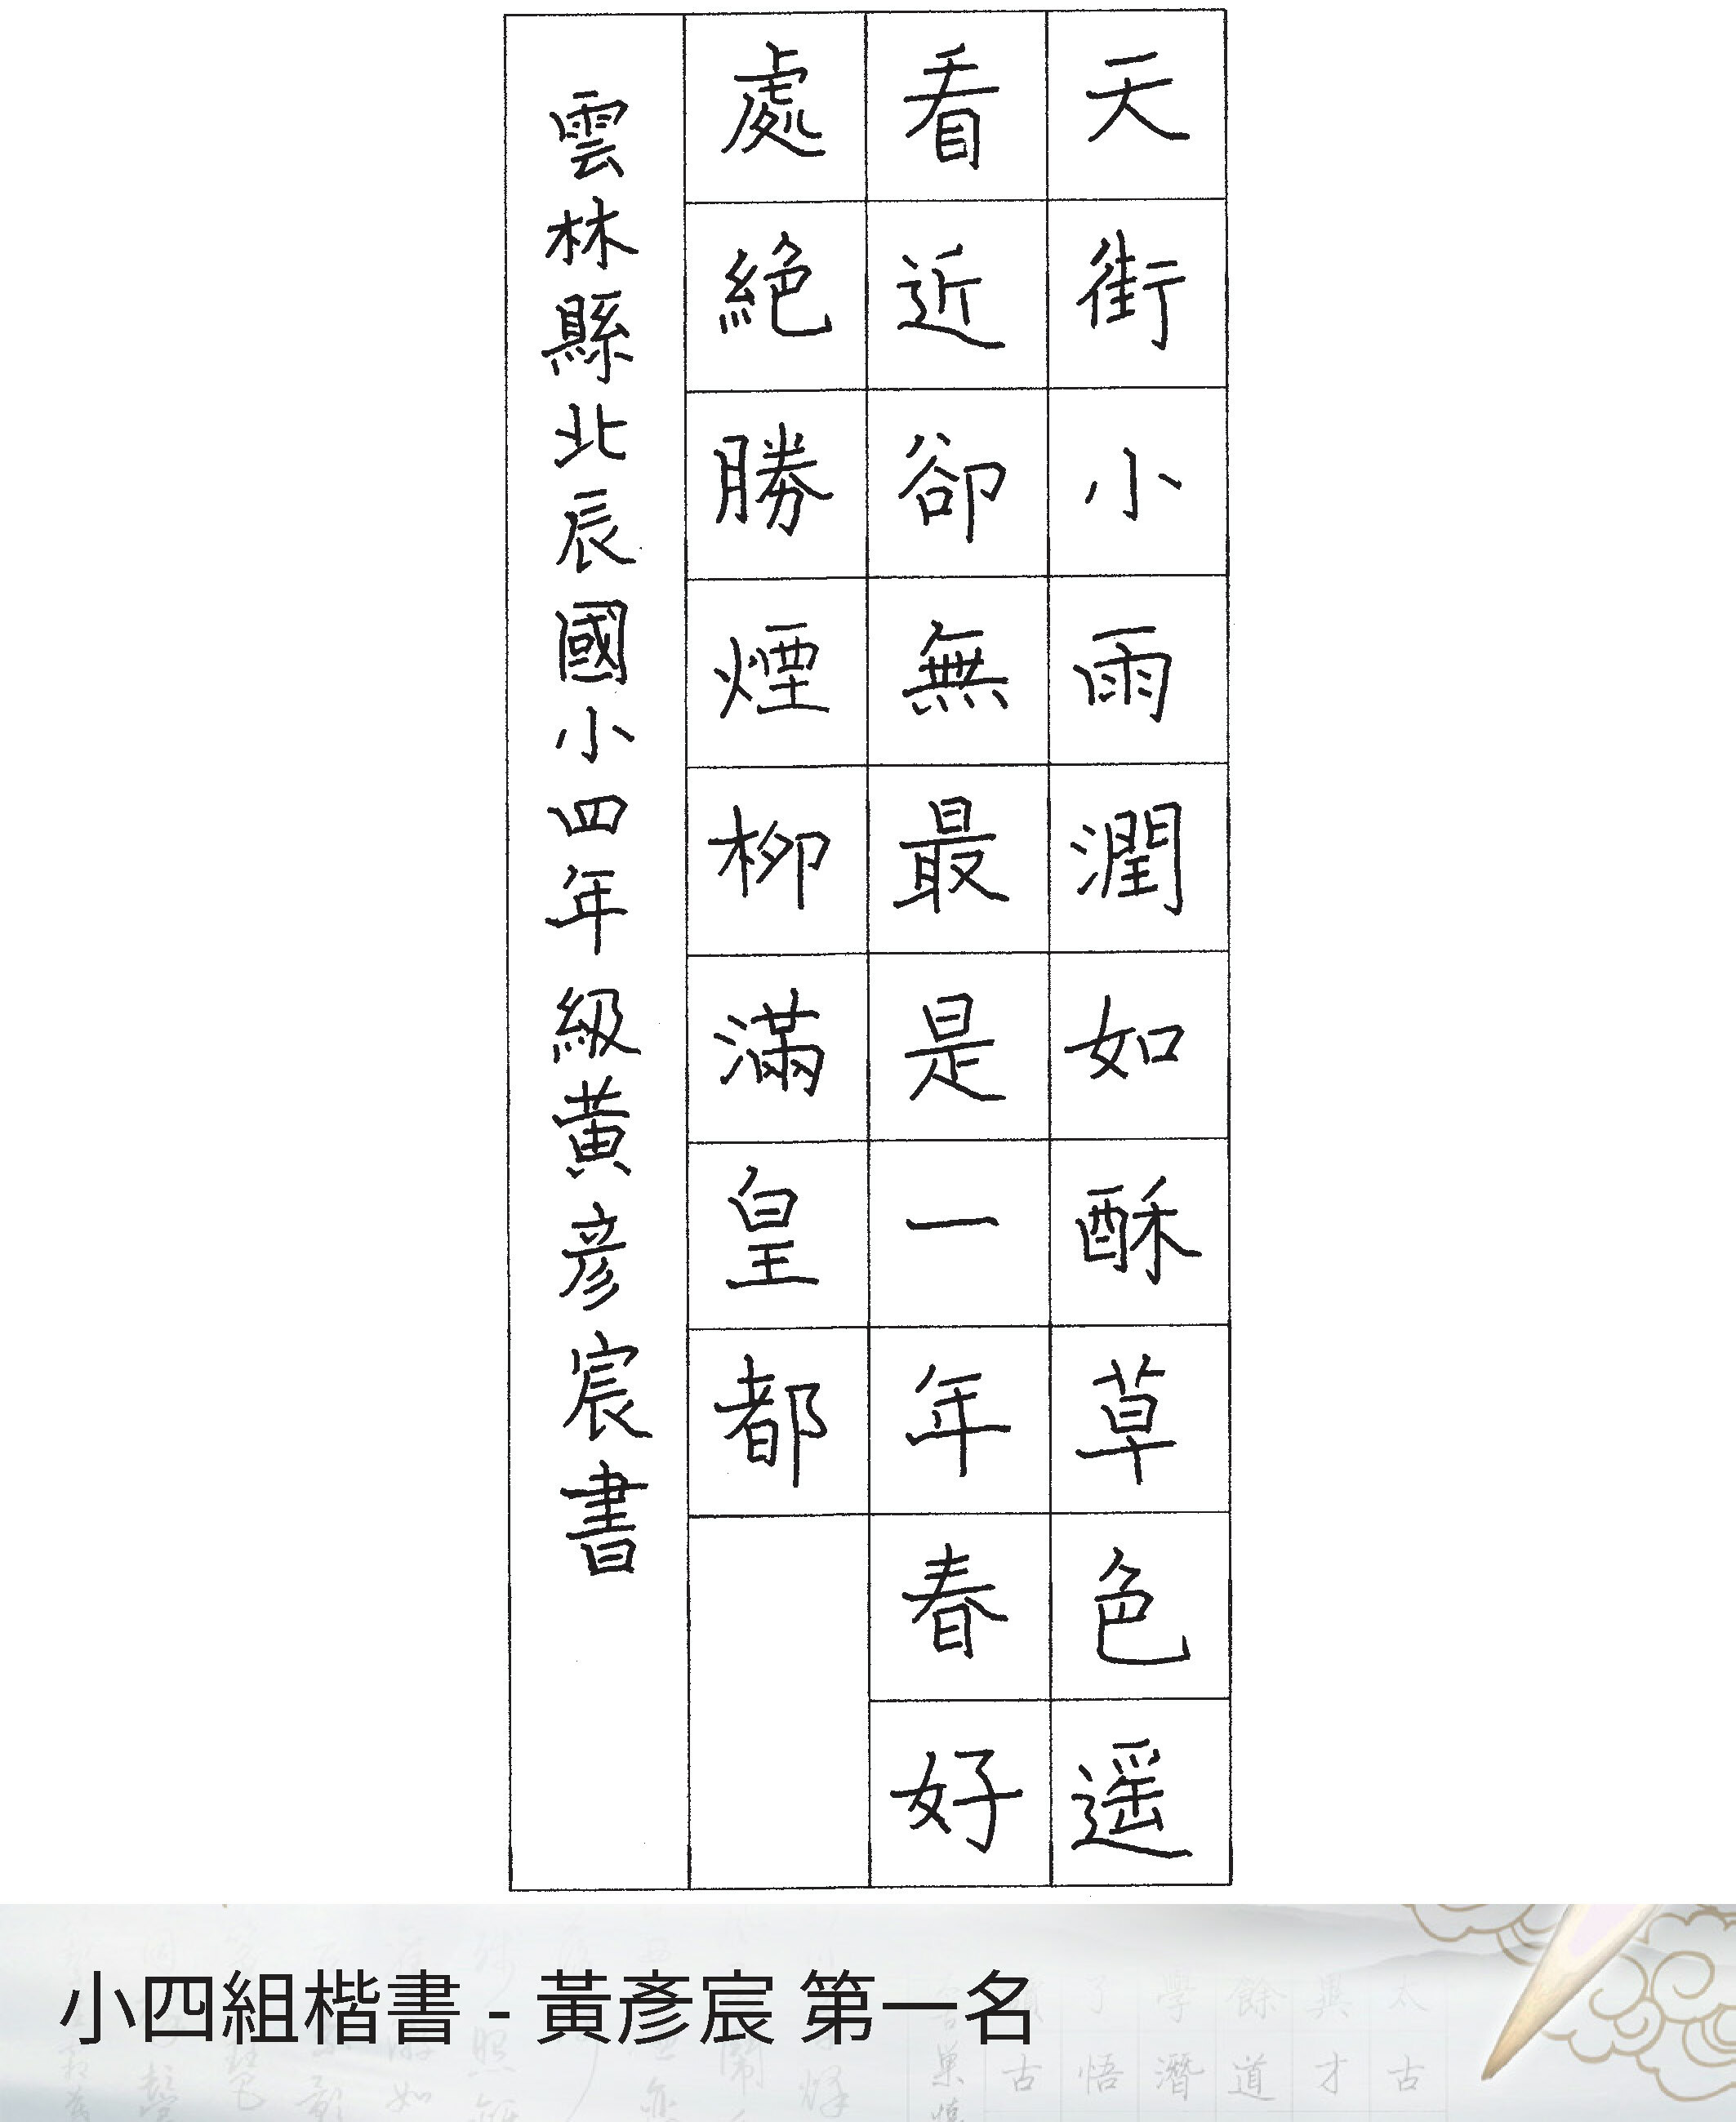 天街小雨潤如酥草色遥
看近卻無最是一年春好
處絕勝煙柳滿皇都
雲林縣北辰國小四年級黃彥宸書
小四組楷書 - 黃彥宸 第一名